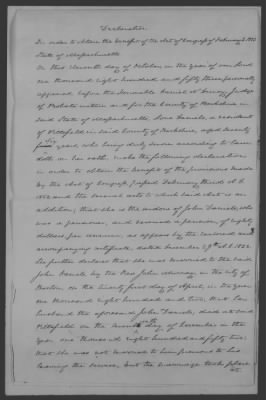 Declaration
In order to obtain the benefit of the Act of Congress of February 3, 1853
State of Massachusetts
On this eleventh day of October, in the year of our Lord
one thousand eight hundred and fifty three personally
appeared before the Honorable Daniel N. Dewey, Judge
of Probate within and for the County of Berkshire in
said State of Massachusetts, Daniels, a resident
of Pittsfield in said County of Berkshire, aged Seventy
years, who being duly sworn according to law
doth on her oath, make the following declaration
in order to obtain the benefit of the provisions made
by the Act of Congress passed February third
1853 and the several acts to which said Act is an
addition; that she is the widow of John Daniels, who
was a pensioner, and received a pension of eighty
dollars per annum, as appears by the enclosed and
accompanying certificate, dated December
She further declares that she was married to the said
John Daniels by the Rev. John Murray in the city of
Boston, on the twenty first day of April, in the year
one thousand eight hundred and two, that her
husband the aforesaid John Daniels, died at said
Pittsfield on the day of November in the
year one thousand eight hundred and fifty two;
that she was not married to him previous to his
leaving the service, but the marriage took place